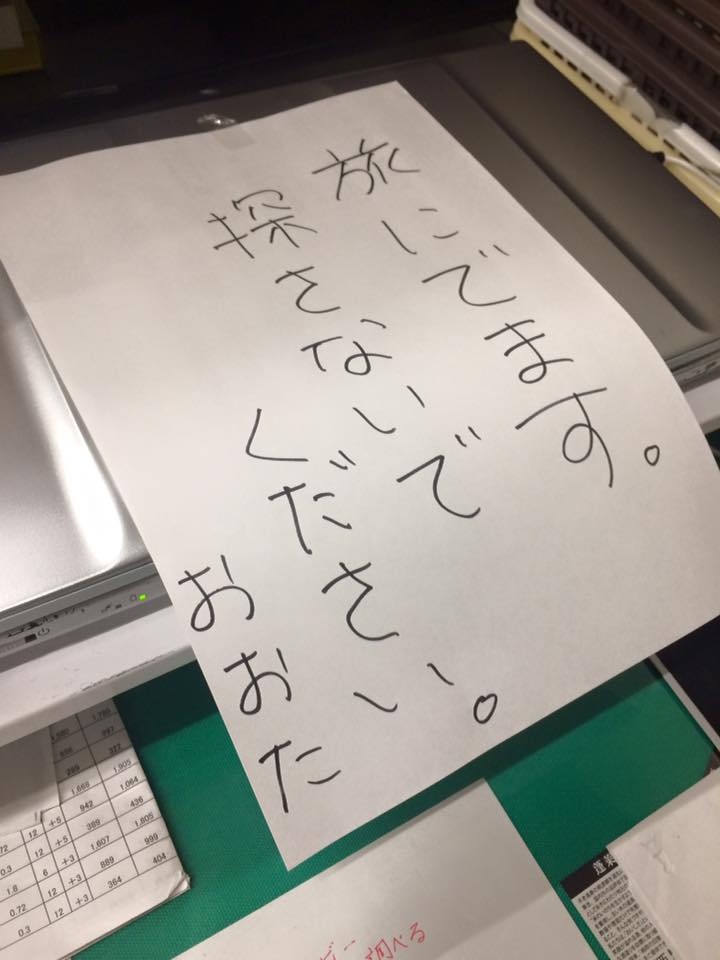 旅にでます。
探さないで
ください。
おおた
調べる
蓬莱
1,780
397
322
1,905
1,064
436
1,605
999
404
1,580
856
269
1,668
942
389
1,607
889
364
+5
+5
+3
+3
+3
12
12
6
12
12
0.3
1.6
0.72
0.3